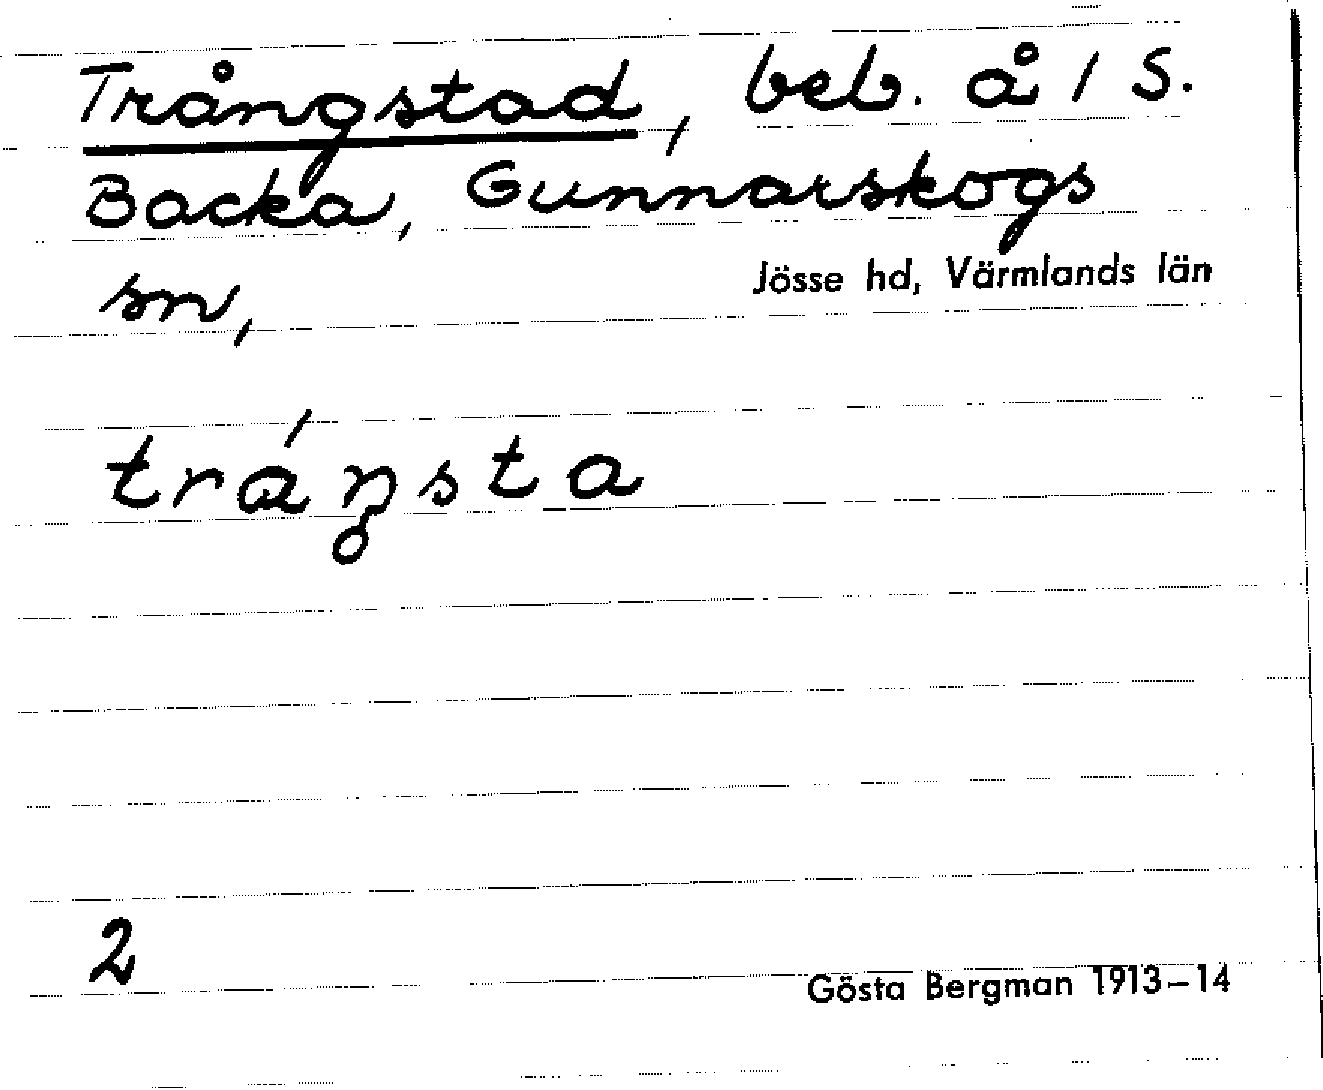 Trångstad, beb. å 1 S.
Backa, Gunnarskogs
sn,
Jösse hd, Värmlands län
trá̱ŋsta
2
Gösta Bergman 1913–14